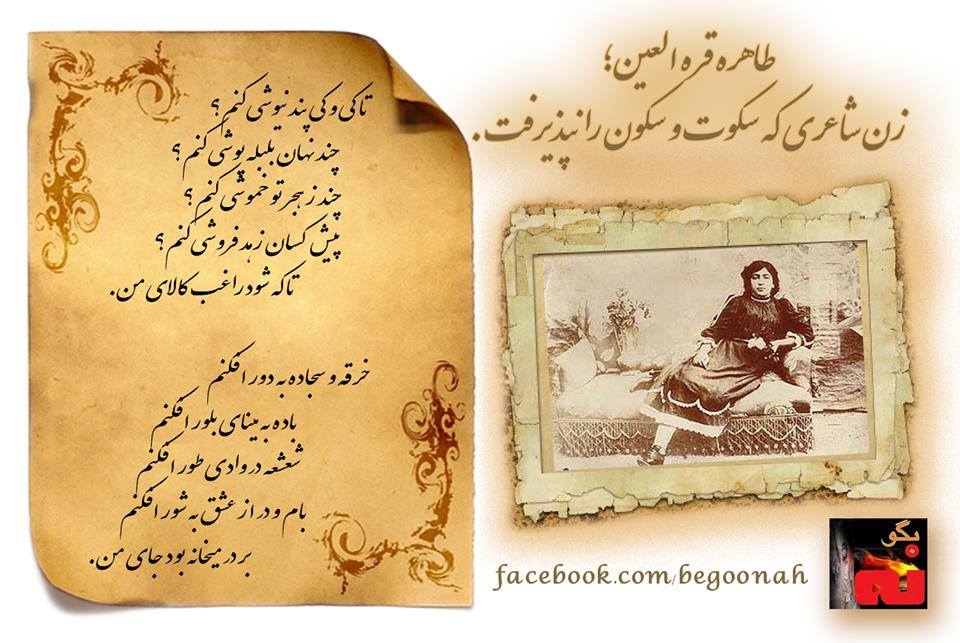 طاهره قره العین؛
زن شاعری که سکوت و سکون را نپذیرفت.
تا کی و کی پند نیوشی کنم؟
چند نهان بلبله پوشی کنم؟
چند ز هجر تو خموشی کنم؟
پیش کسان زهد فروشی کنم؟
تا که شود راغب کالای من.
خرقه و سجاده به دور افکنم
باده به مینای بلور افکنم
شعشعه در وادی طور افکنم
بام و در از عشق به شور افکنم
بر در میخانه بود جای من.
facebook.com/begoonah
بگو
نه